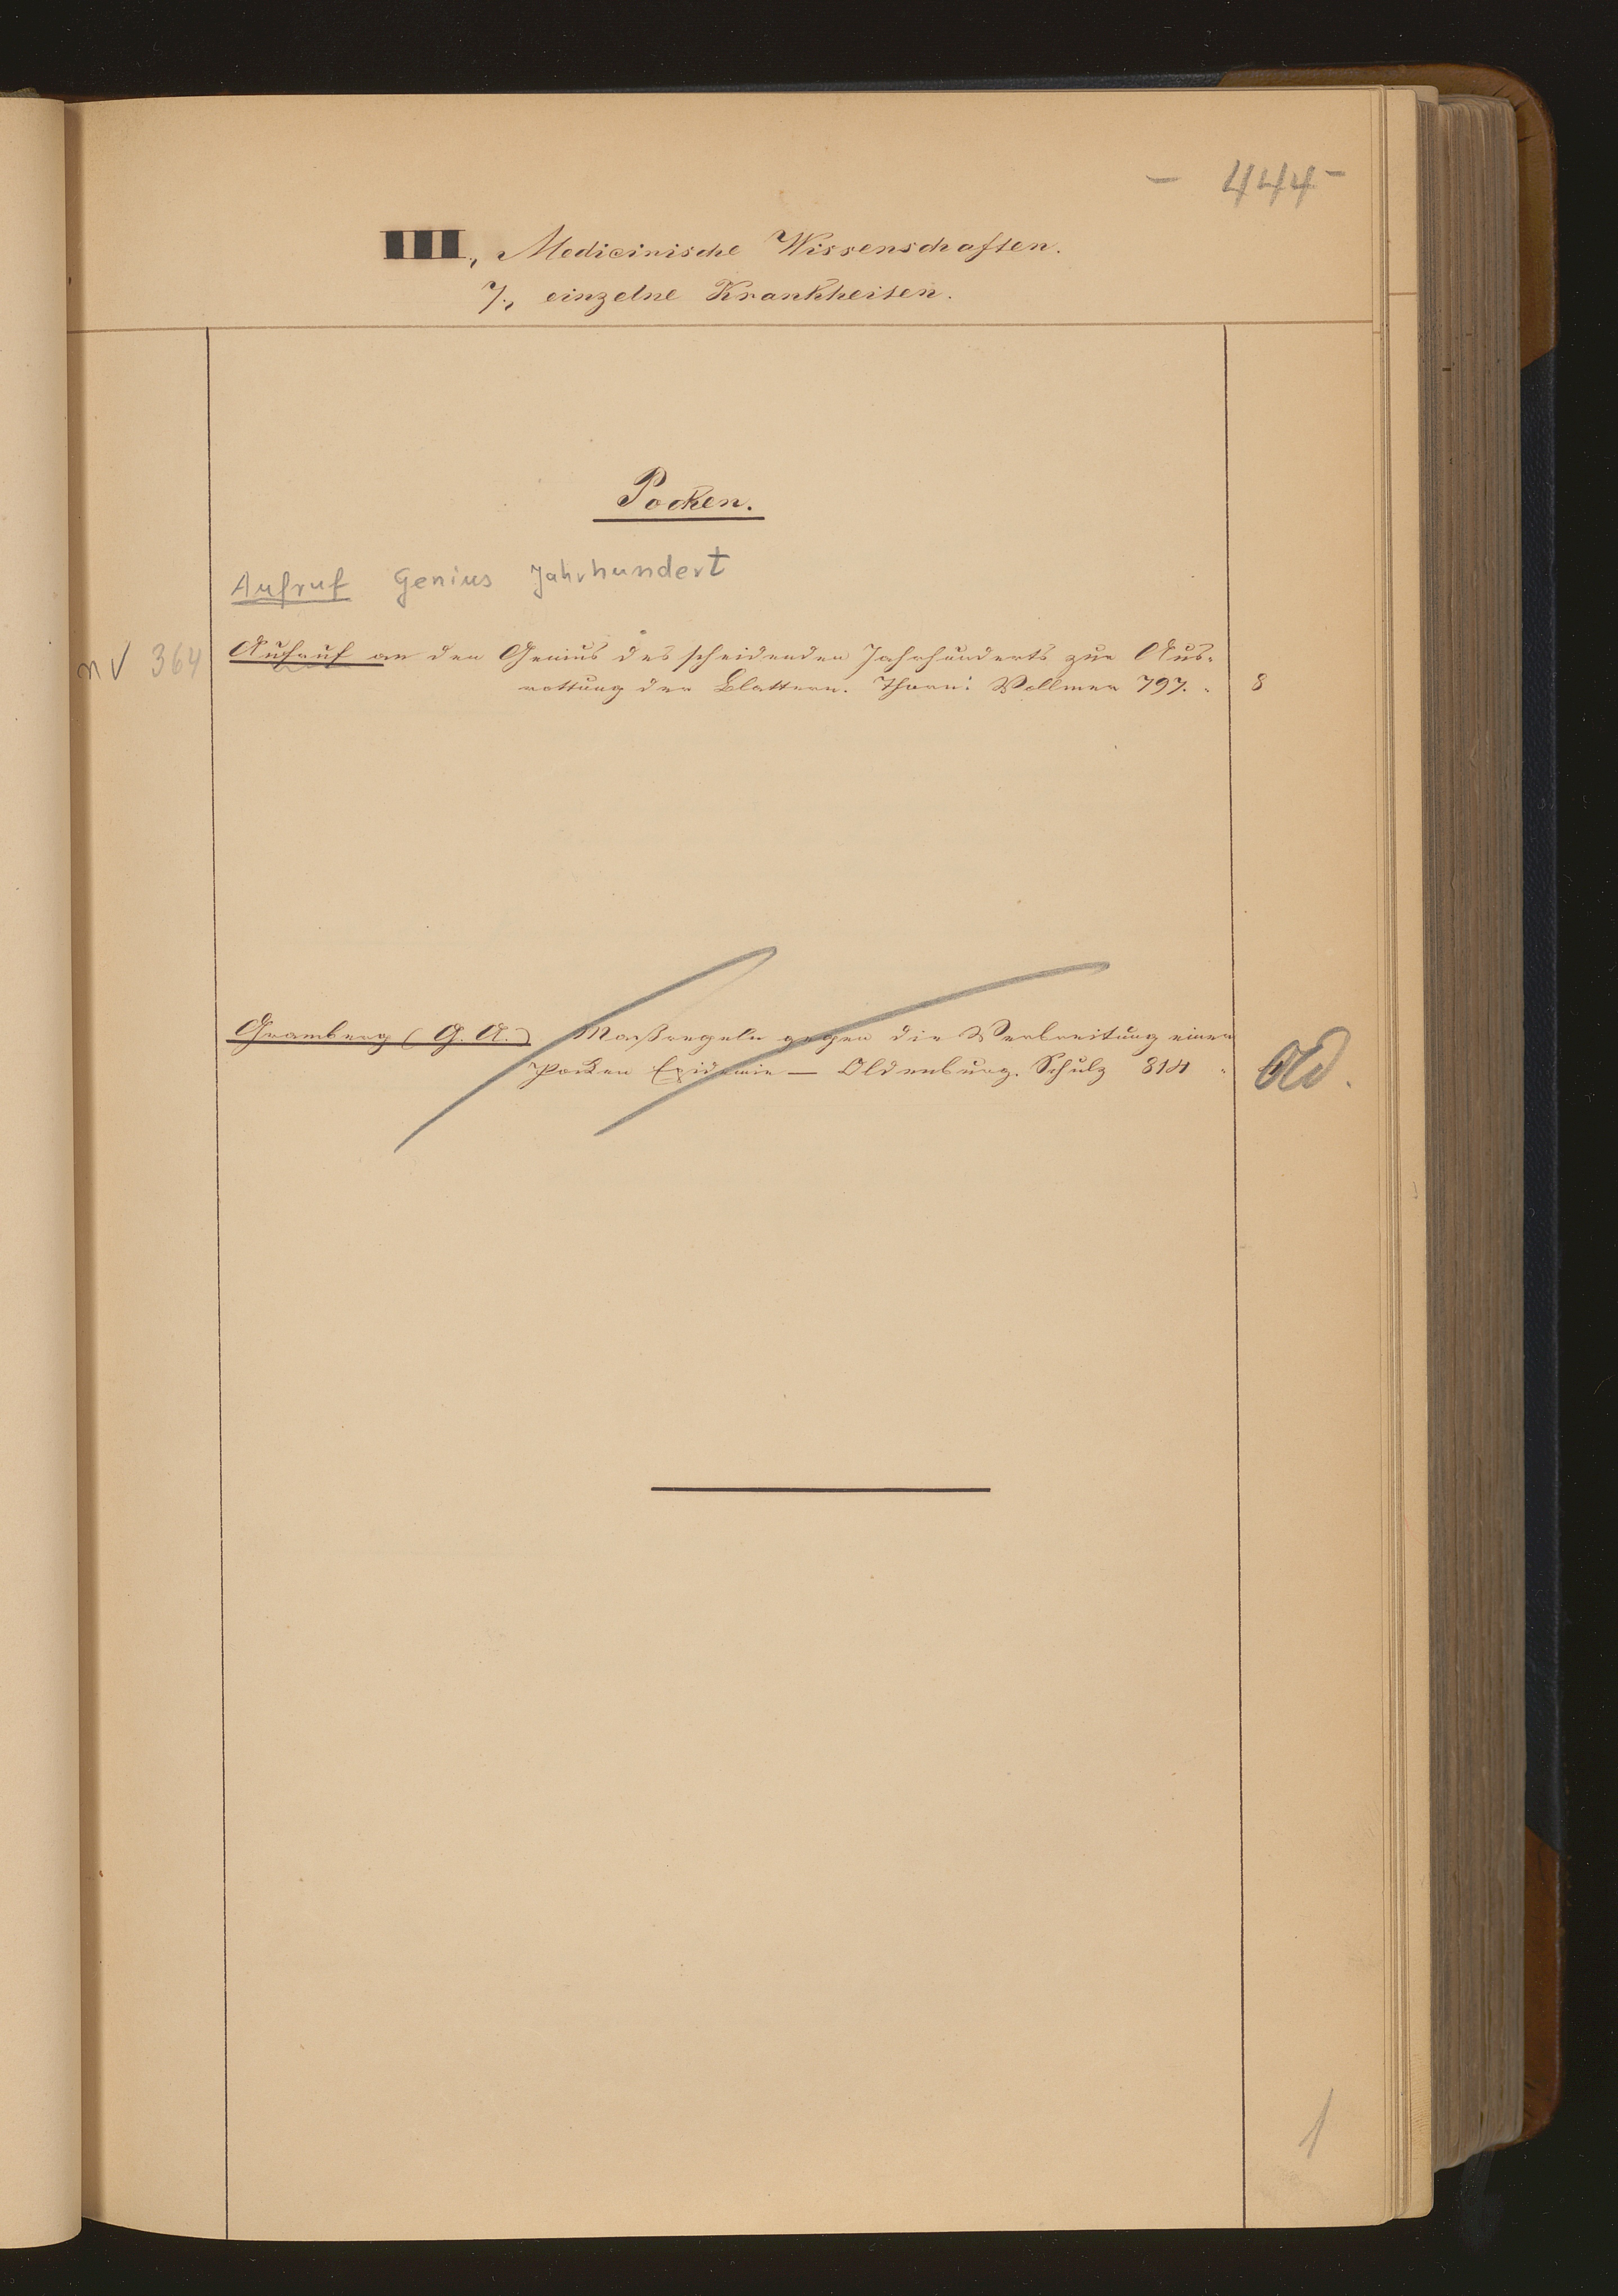 - 444 -
III, Medicinische Wissenschaften.
7., einzelne Krankheiten.
Pocken.
Aufruf Genius Jahrhundert
nv 364 Aufruf an den Genius des scheidenden Jahrhunderts zur Aus-
rottung der Blattern. Thorn: Vollmer 797. 8
Gramberg (G. A.) Maßregeln gegen die Verbreitung einer
Pocken Epidemie — Oldenburg. Schulz 814 Old.
1